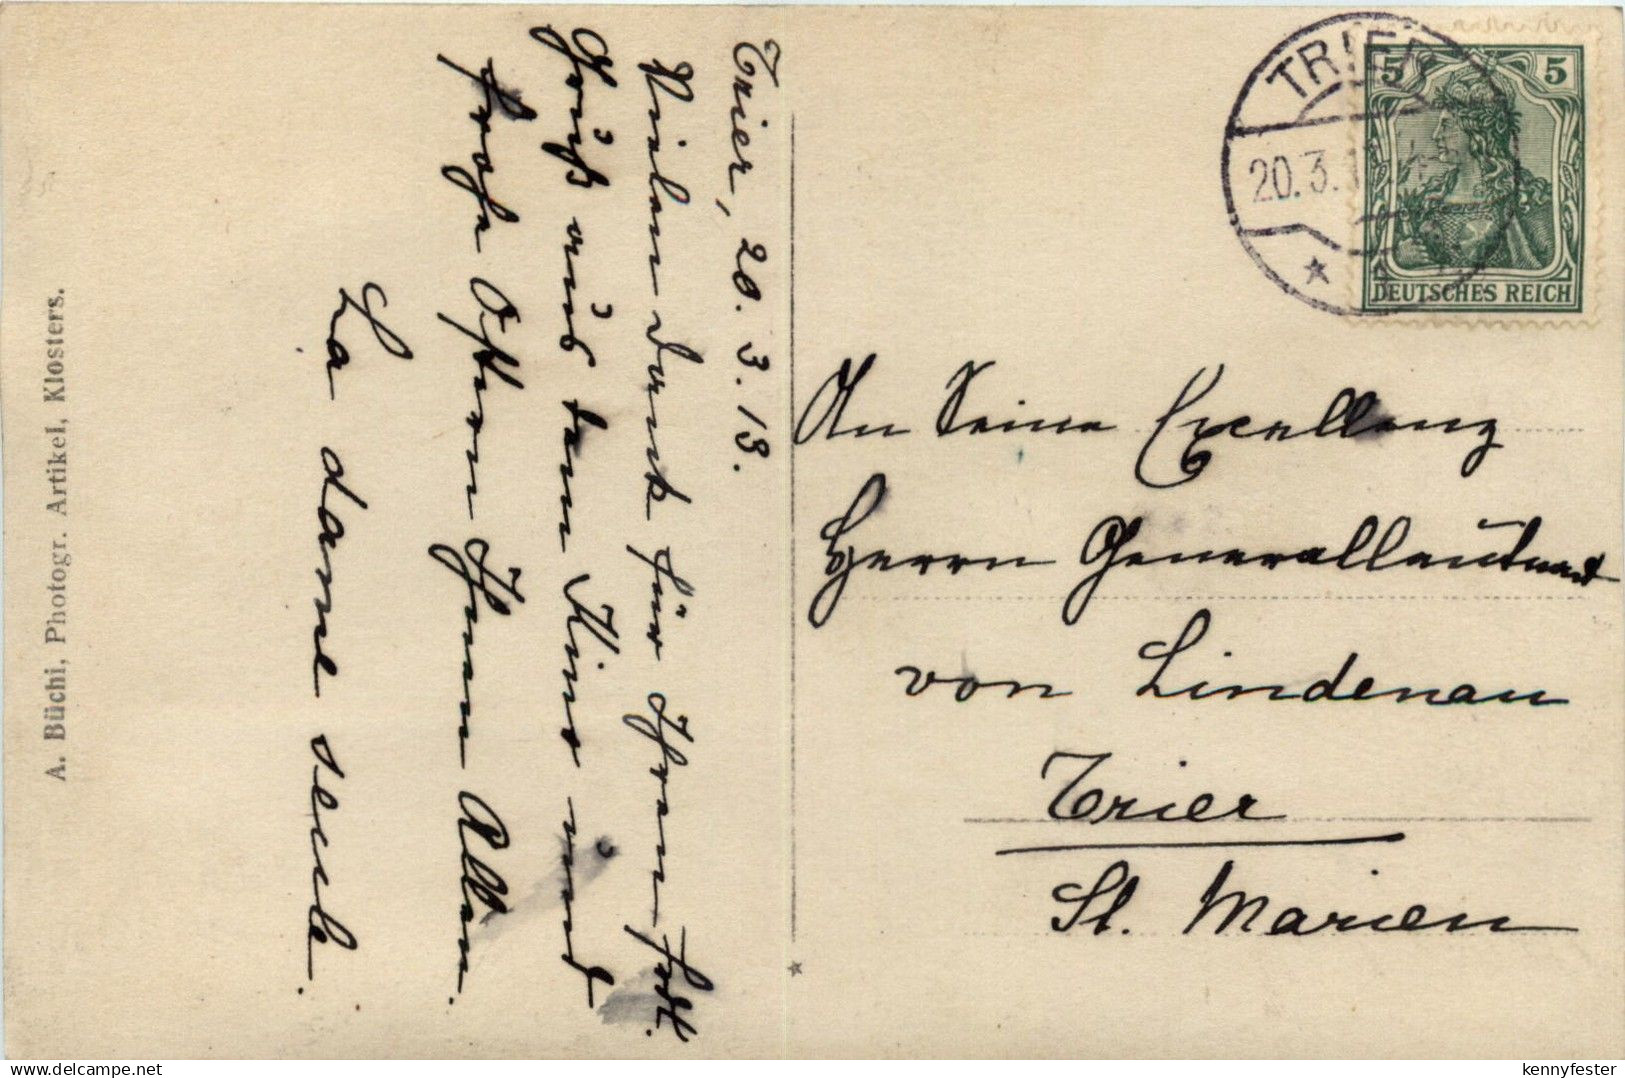 A. Büchi, Photogr. Artikel, Klosters.
Trier, 20. 3. 13.
Vielen Dank für Ihren frdl.
Gruß aus dem Kino und
frohe Ostern Ihnen Allen.
La dame seule.
TRIER
20.3.1
5 5
DEUTSCHES REICH
An Seine Excellenz
Herrn Generalleutnant
von Lindenau
Trier
St. Marien
delcampe.net
kennyfester